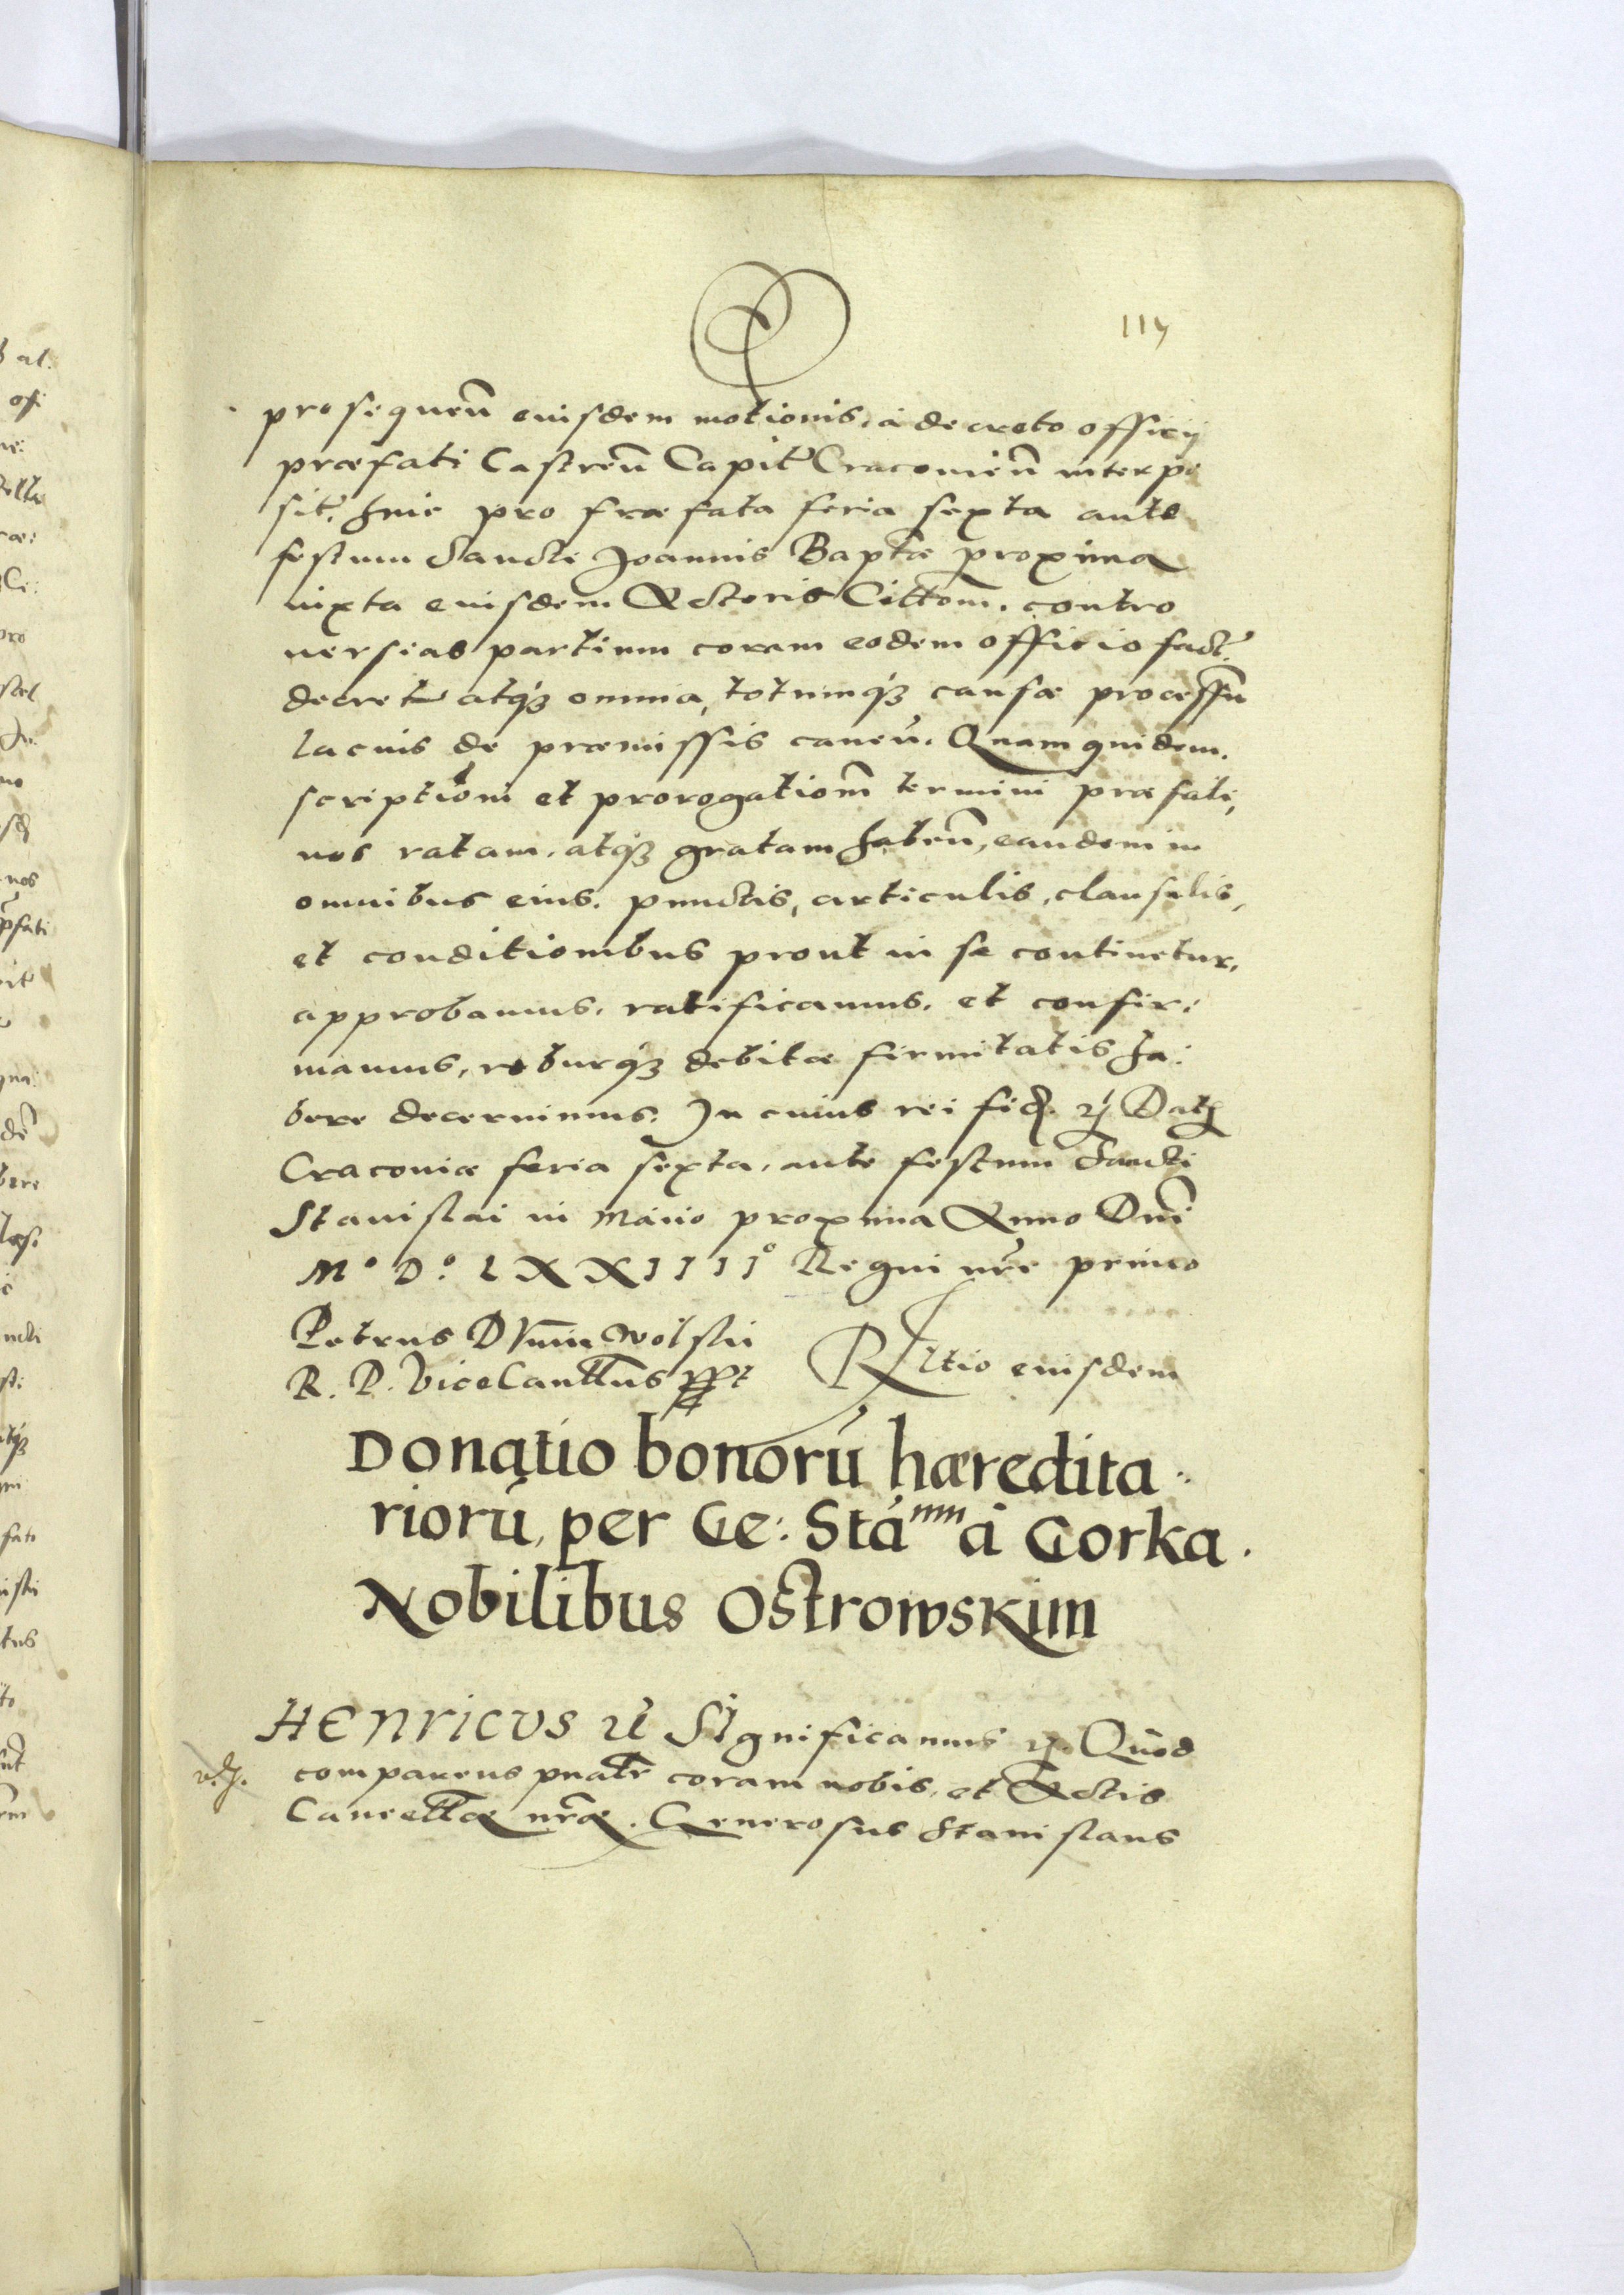 117
prosequeñ euisdem motionis, à decreto officij
præfati Castreñ Capit̃ Cracouieñ interpo
sit̃. huic pro præfata feria sexta ante
festum Sancti Joannis Baptæ proxima
iuxta euisdem Actoris Cittom̃. contro
uersias partium coram eodem officio fact̃
decret atq̃ omnia, totumq̃ causæ processũ
lacius de præmissis caneñ. Quam quidem.
scriptiom̃ et prorogatiom̃ termini præfati,
nos ratam, atq̃ gratam habeñ, eandem in
omnibus eius. punctis, articulis, clausulis,
et conditionibus prout in se continetur,
approbamus, ratificamus, et confir:
mamus, roburq̃ debitæ firmitatis ha:
bere decernimus. In cuius rei fid. Dat
Cracouiæ feria sexta, ante festum Sancti
Stanislai in Maio proxima Anno Dñi
M° D° LXXIIII° Regni nr̃i primo
Petrus Dunin Wolski
R. P. ViceCancllus sspt R Rltio euisdem
Donatio bonorũ hæredita:
riorũ, per Ge: Stá a Gorka.
Nobilibus Ostrowskim
HENRICVS Significamus Quod
comparens pnatr coram nobis, et Actis
Cancellæ nr̃æ. Generosus Stanislaus